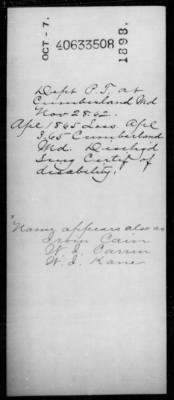 OCT-7.
40633508
1898.
Dept P.T. at
Cumberland Md
Nov 28.62.
Apl 1865 Apl
3,65 Cumberland
Md. Dischg'd
Surg Certif of
disability.
"Name appears also as
Cain
W. J.
W. J. Kane